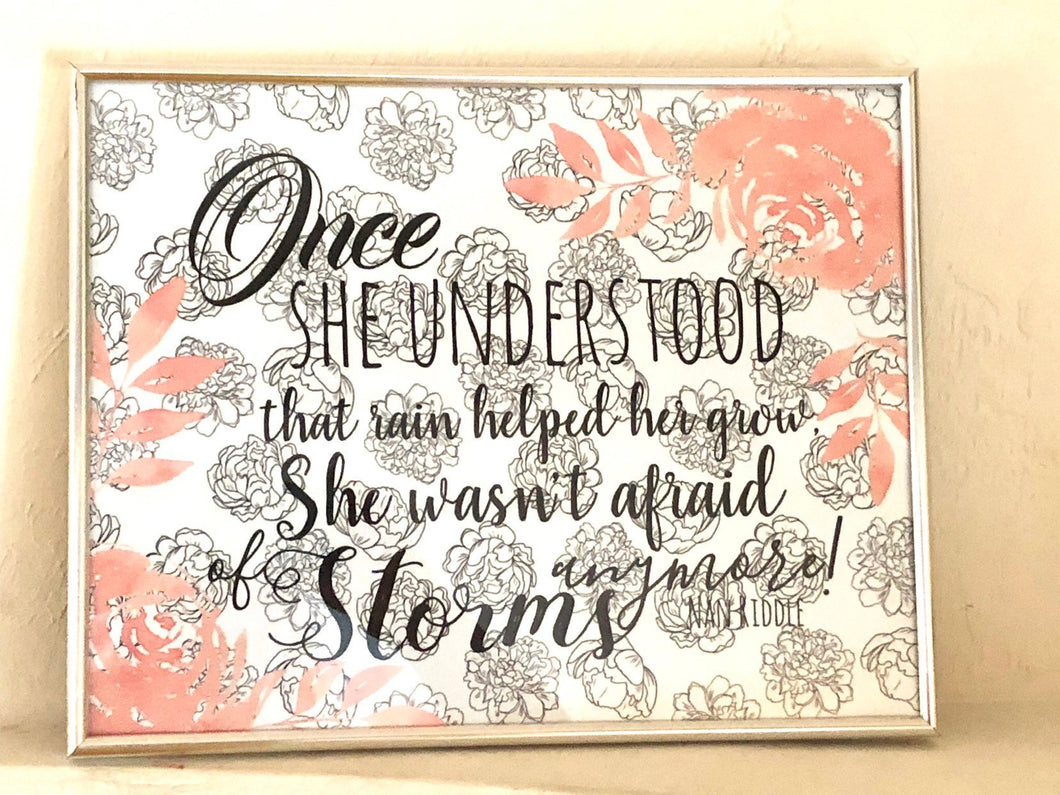 Once
SHE UNDERSTOOD
that rain helped her grow,
She wasn't afraid
of Storms anymore!
NAN RIDDLE